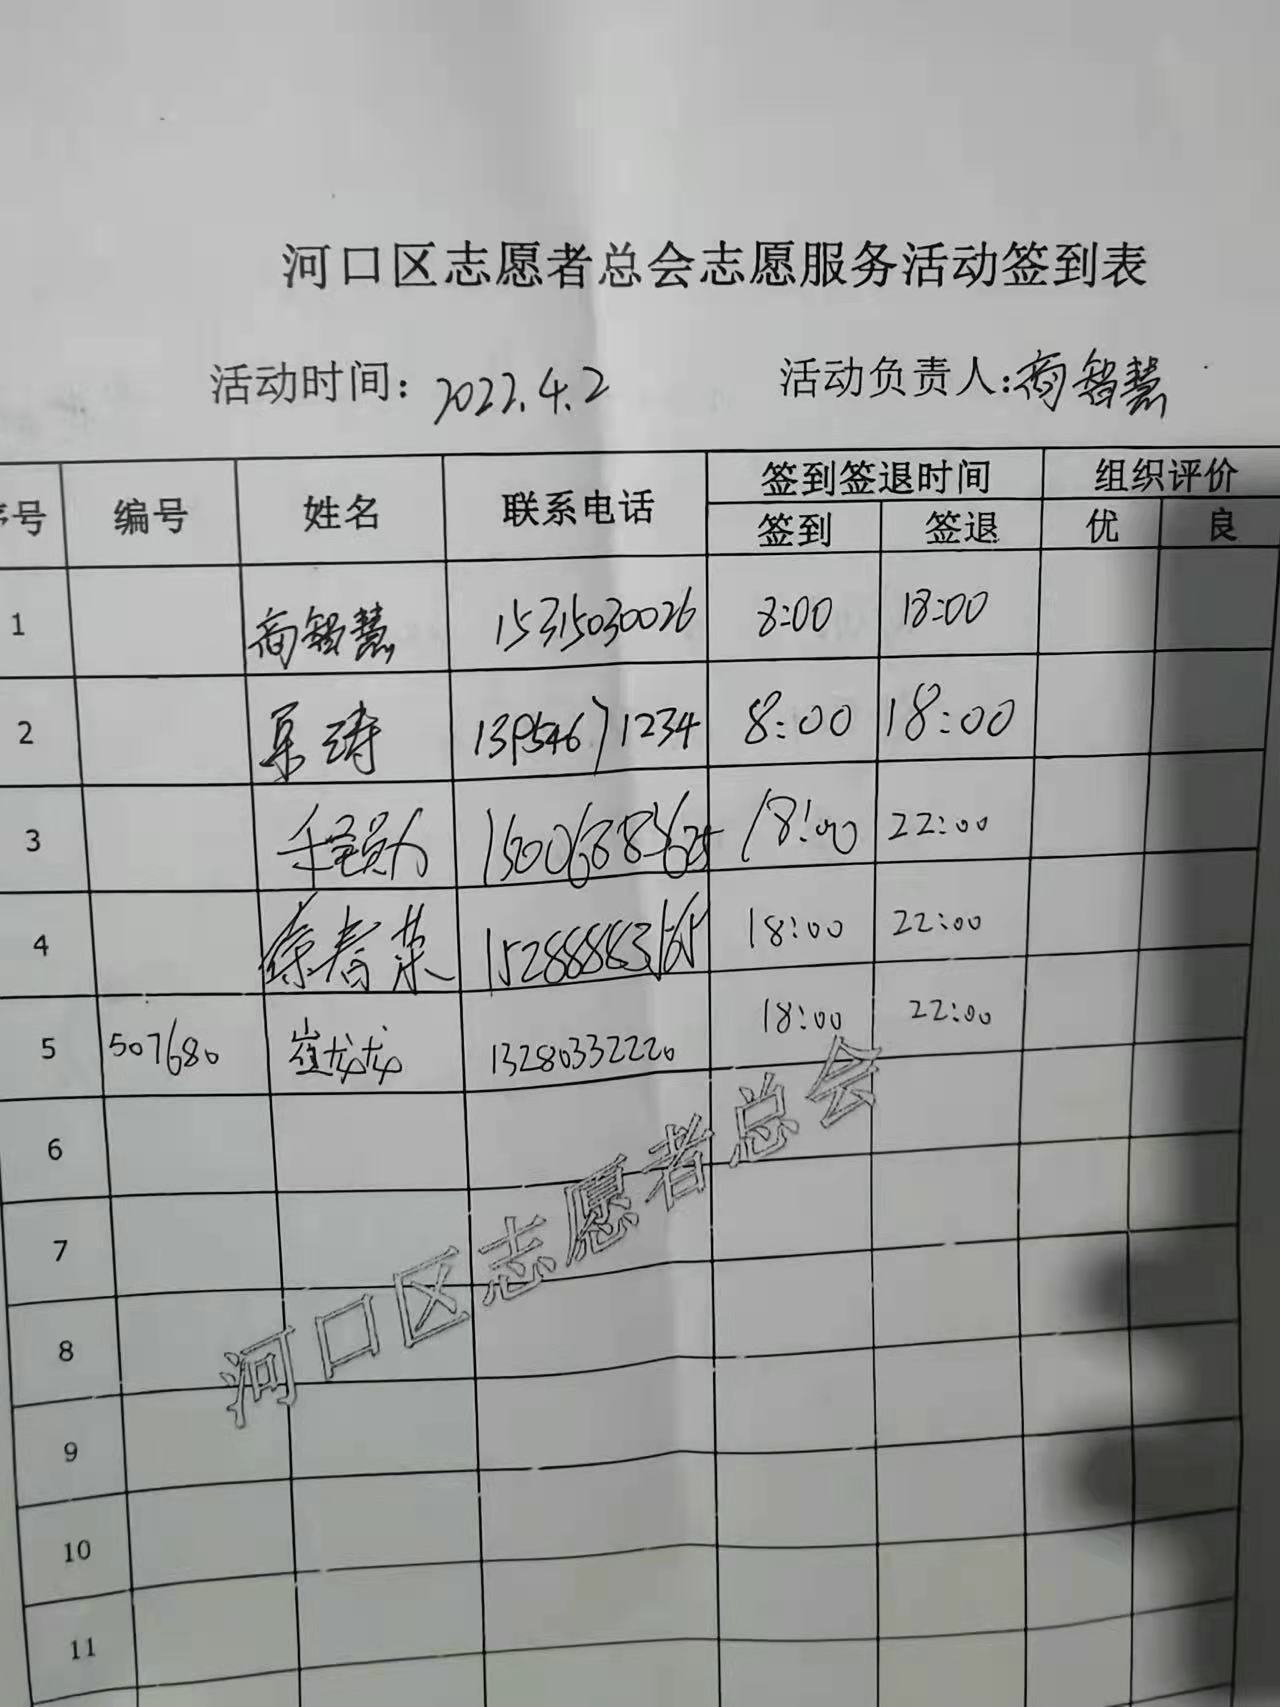 河口区志愿者总会志愿服务活动签到表
活动时间: 2022.4.2 活动负责人:商智慧
序号 编号 姓名 联系电话 签到签退时间 组织评价
签到 签退 优 良
1 商智慧 15315030026 8:00 18:00
2 涛 13954671234 8:00 18:00
3 18:00 22:00
4 春荣 15288883165 18:00 22:00
5 507680 崔龙龙 13280332220 18:00 22:00
6
7
8
9
10
11
河口区志愿者总会